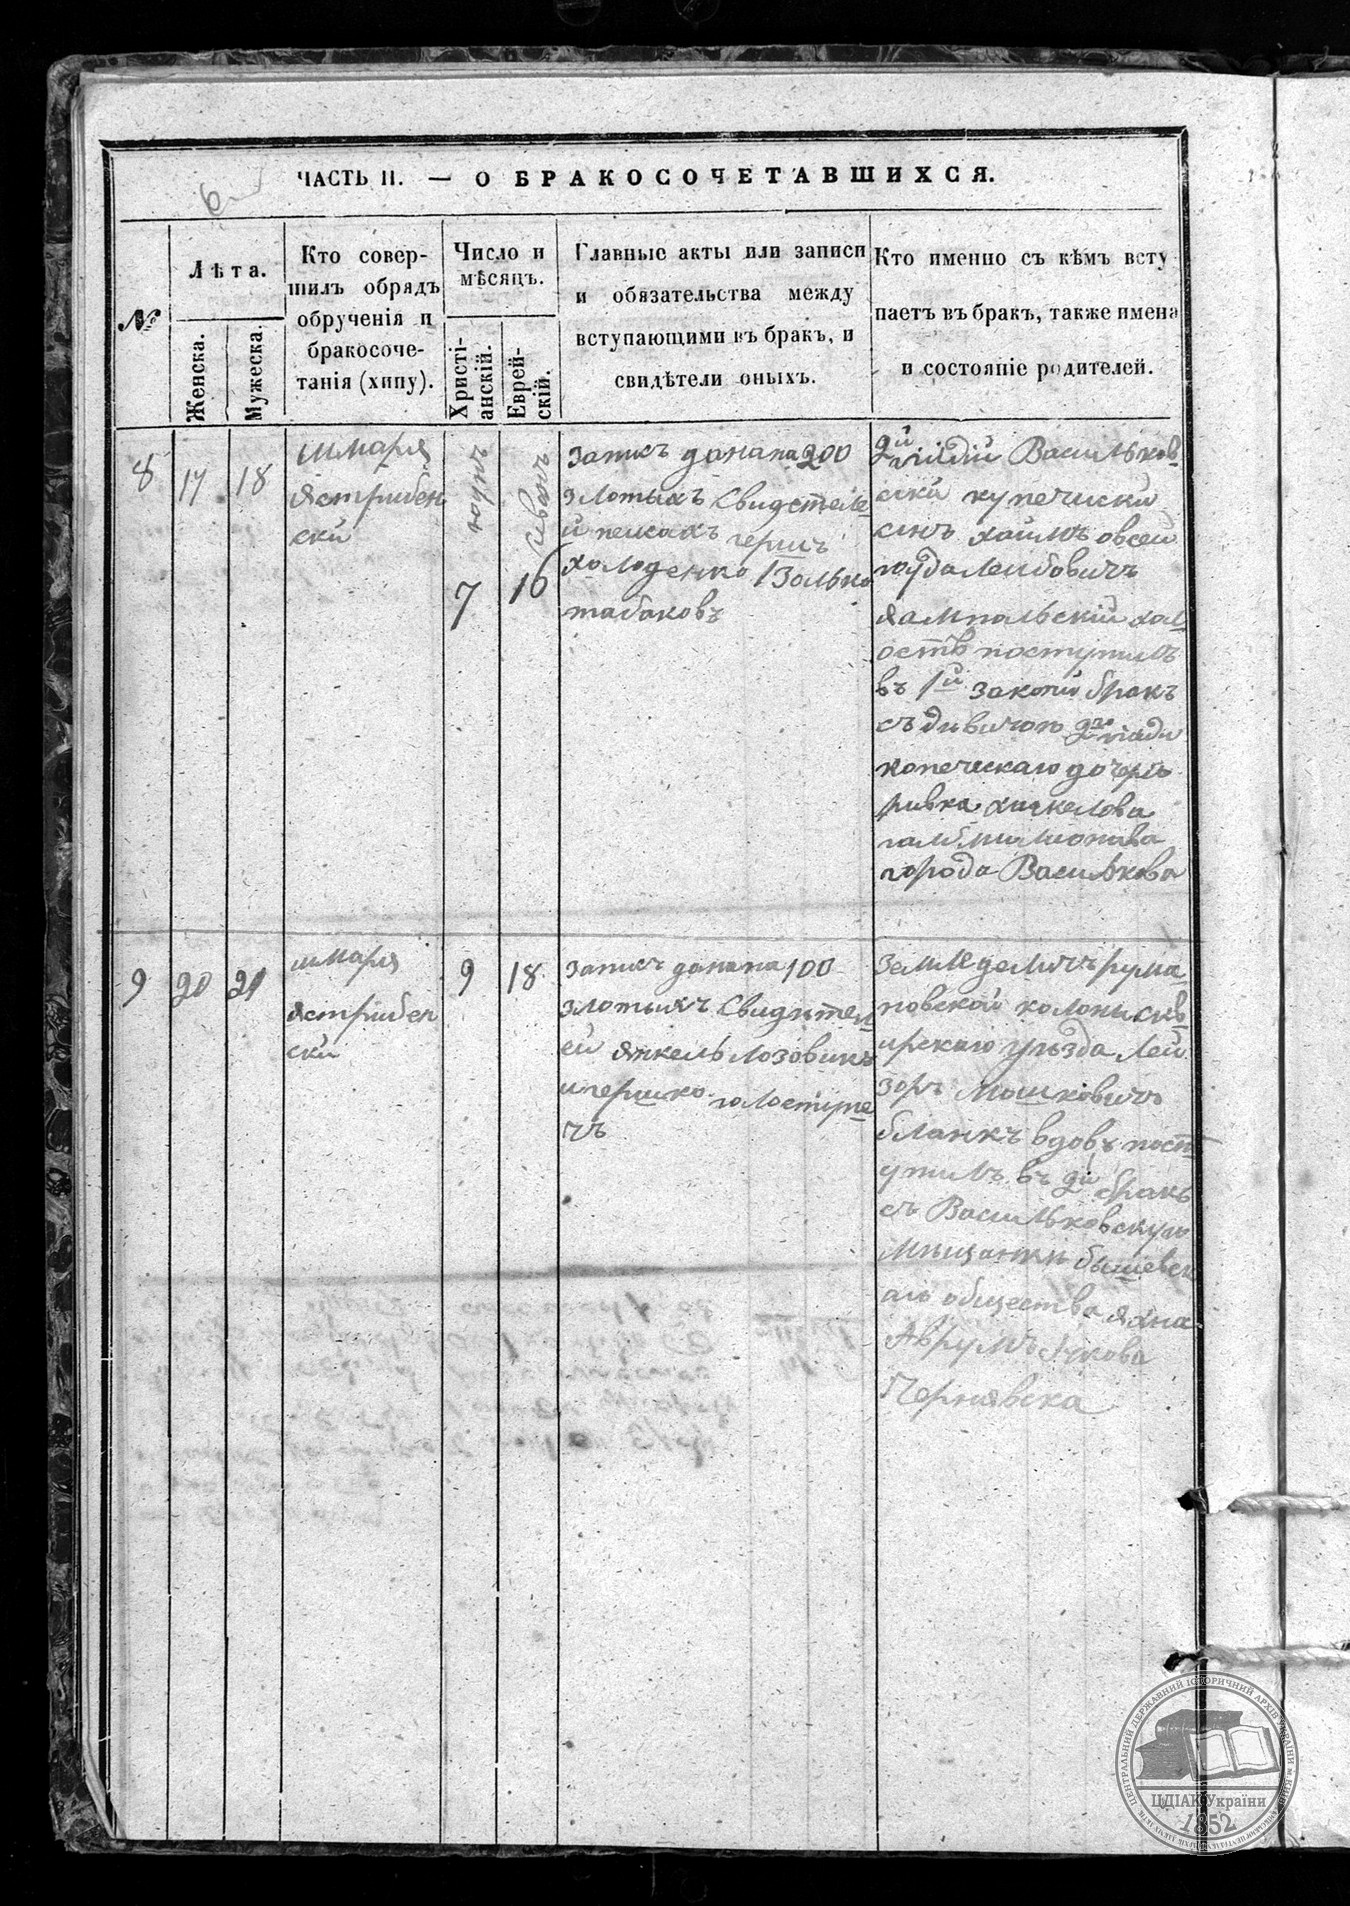 ЧАСТЬ II. — О БРАКОСОЧЕТАВШИХСЯ.
№
Лѣта.
Женска.
Мужеска.
Кто совер-
шилъ обрядъ
обрученія и
бракосоче-
танія (хипу).
Число и
мѣсяцъ.
Христі-
анскій.
Еврей-
скій.
Главные акты или записи
и обязательства между
вступающими въ бракъ, и
свидѣтели оныхъ.
Кто именно съ кѣмъ всту
паетъ въ бракъ, также имена
и состояніе родителей.
8
17
18
шмаря
Ястрибен
ски
7
16
сиванъ
Записъ данана 200
злотыхъ Свидетеле
й пейсахъ гершъ
холоденко Iзолько
табаковъ
2й гилдій Васильков
ски купечиски
синъ хаимъ овсей
юдалейбовичъ
Ямпольский хол
остъ поступилъ
въ 1й закони бракъ
съ дивичою 2й гилди
копечискаго дочеръ
ривка хаскелова
города Василкова
9
20
21
шмаря
Ястрибен
ски
9
18
Записъ данана 100
злотыхъ Свидител
ей Янкель Лозовикъ
и гершко голоступе
чъ
Земледеличъ рума
новской колони скв
ирскаго уезда Лей
зоръ Мошковичъ
бланкъ вдовъ пост
упилъ въ 2й бракъ
съ Васильковскую
мищанки бышевск
аго общества Яхна
Чернявска
ЦЕНТРАЛЬНИЙ ДЕРЖАВНИЙ ІСТОРИЧНИЙ АРХІВ УКРАЇНИ
ЦДІАК України
1852